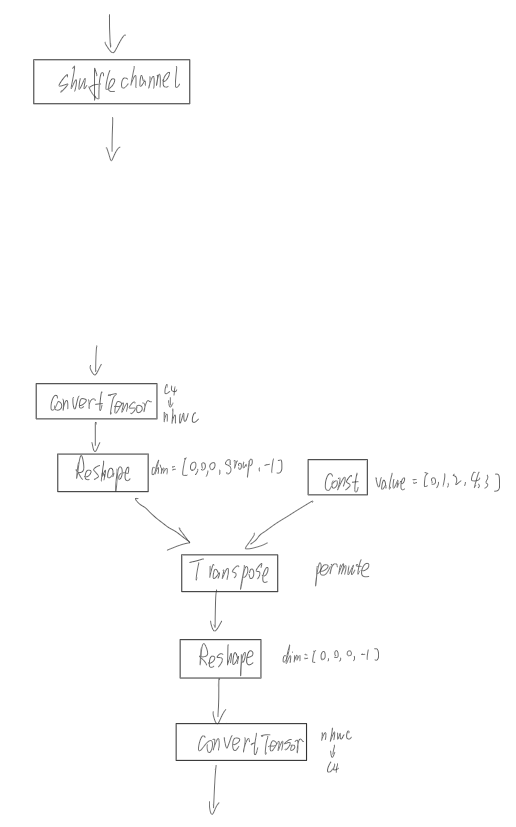 shuffle channel
ConvertTensor
C4
nhwc
Reshape
dim = [0,0,0, group, -1]
Const
value = [0,1,2,4,3]
Transpose
permute
Reshape
dim = [0,0,0,-1]
ConvertTensor
nhwc
C4